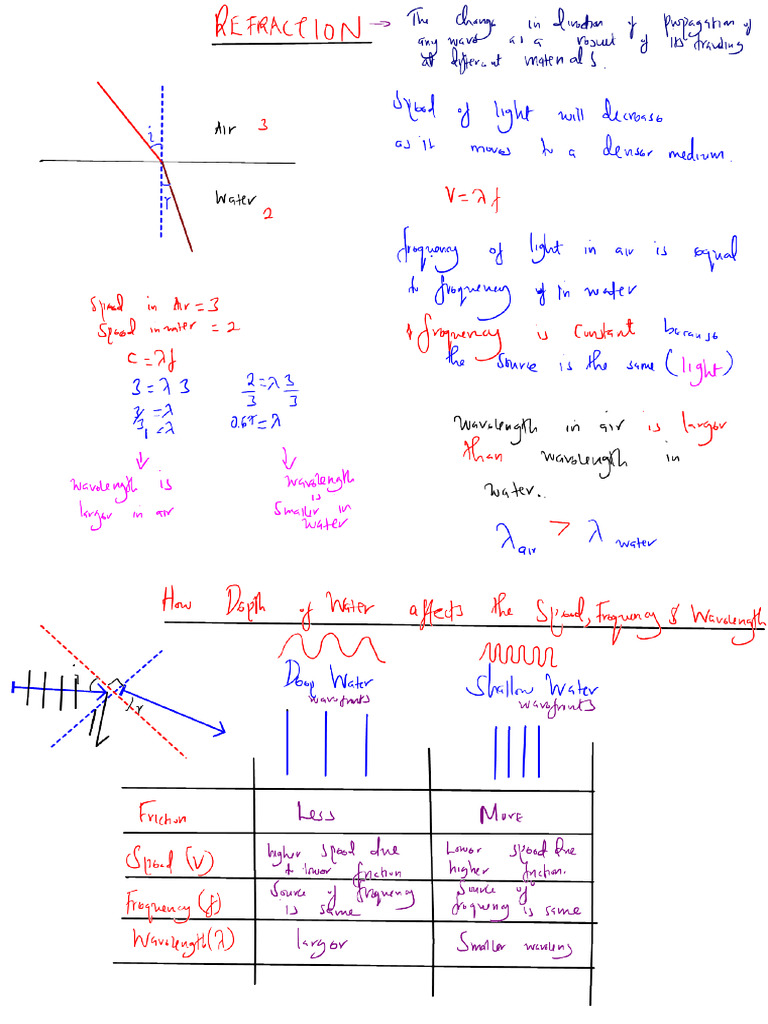 REFRACTION → The change in direction of propagation of
any wave as a result of its traveling
at different materials.
Speed of light will decrease
as it moves to a denser medium.
V = λf
i
Air 3
r
Water
2
frequency of light in air is equal
to frequency of in water
frequency is constant because
the source is the same (light)
Speed in Air = 3
Speed in water = 2
c = λf
3 = λ 3
3/3 = λ
1 = λ
2/3 = λ 3/3
0.67 = λ
wavelength is
larger in air
wavelength
is
smaller in
water
wavelength in air is larger
than wavelength in
water.
λ air > λ water
How Depth of Water affects the Speed, Frequency & Wavelength
i
r
Deep Water
wavefronts
Shallow Water
wavefronts
Friction
Less
More
Speed (V)
higher speed due
to lower friction
Lower speed due
higher friction.
Frequency (f)
Source of frequency
is same
Source of
frequency is same
Wavelength (λ)
larger
Smaller waveleng